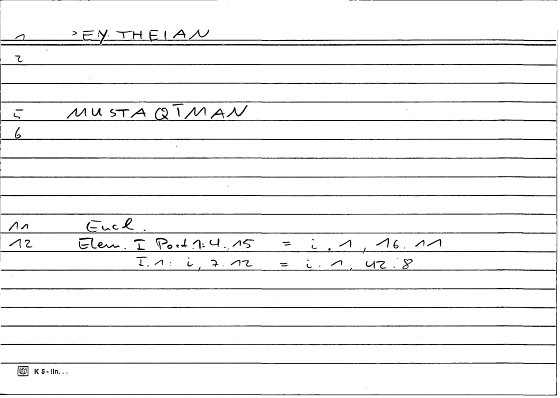 1 ʾEY THEIAN
2
5 MUSTAQĪMAN
6
11 Eucl.
12 Elem. I Post. 1: 4.,15 = i, 1, 16.11
I.1: i, 7.12 = i. 1, 42.8
K 5 - lin...